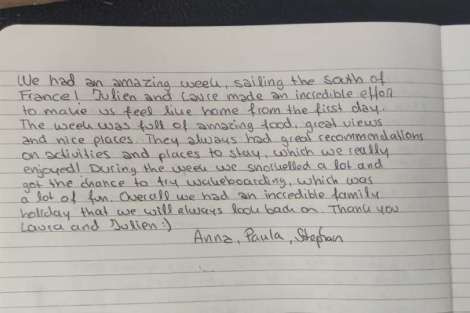 We had an amazing week, sailing the south of
France! Julien and Laura made an incredible effort
to make us feel like home from the first day.
The week was full of amazing food, great views
and nice places. They always had great recommendations
on activities and places to stay, which we really
enjoyed! During the week we snorkelled a lot and
got the chance to try wakeboarding, which was
a lot of fun. Overall we had an incredible family
holiday that we will always look back on. Thank you
Laura and Julien :)
Anna, Paula, Stephan